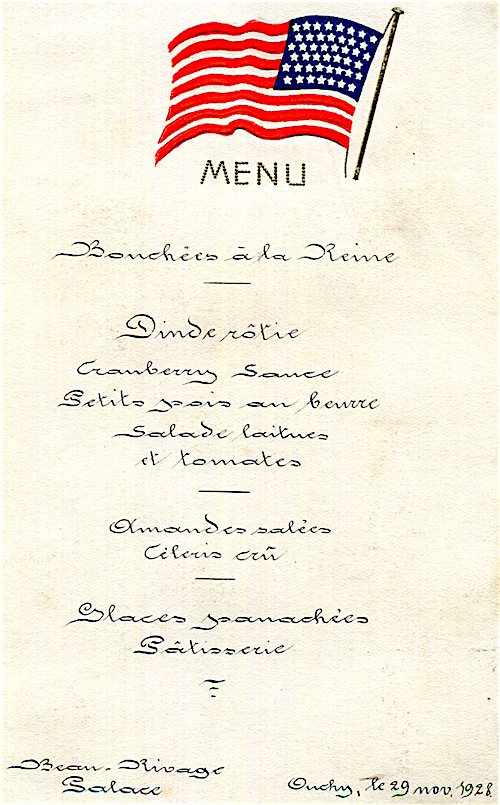 MENU
Bouchées à la Reine
Dinde rôtie
Cranberry Sauce
Petits pois au beurre
Salade laitues
et tomates
Amandes salées
Céleris crû
Glaces panachées
Pâtisserie
Beau-Rivage
Palace
Ouchy, le 29 nov. 1928.